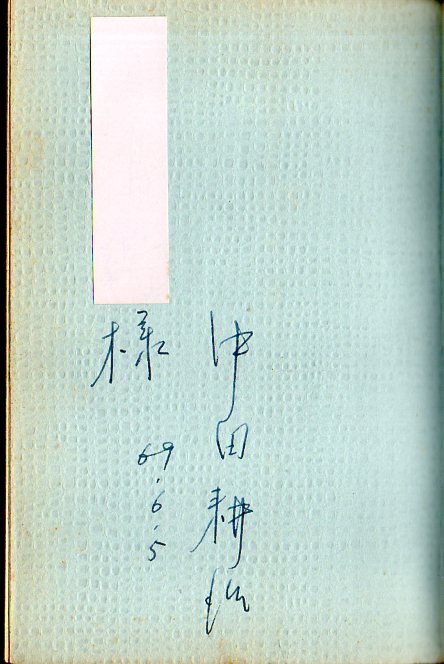 中田耕治
69.6.5
様